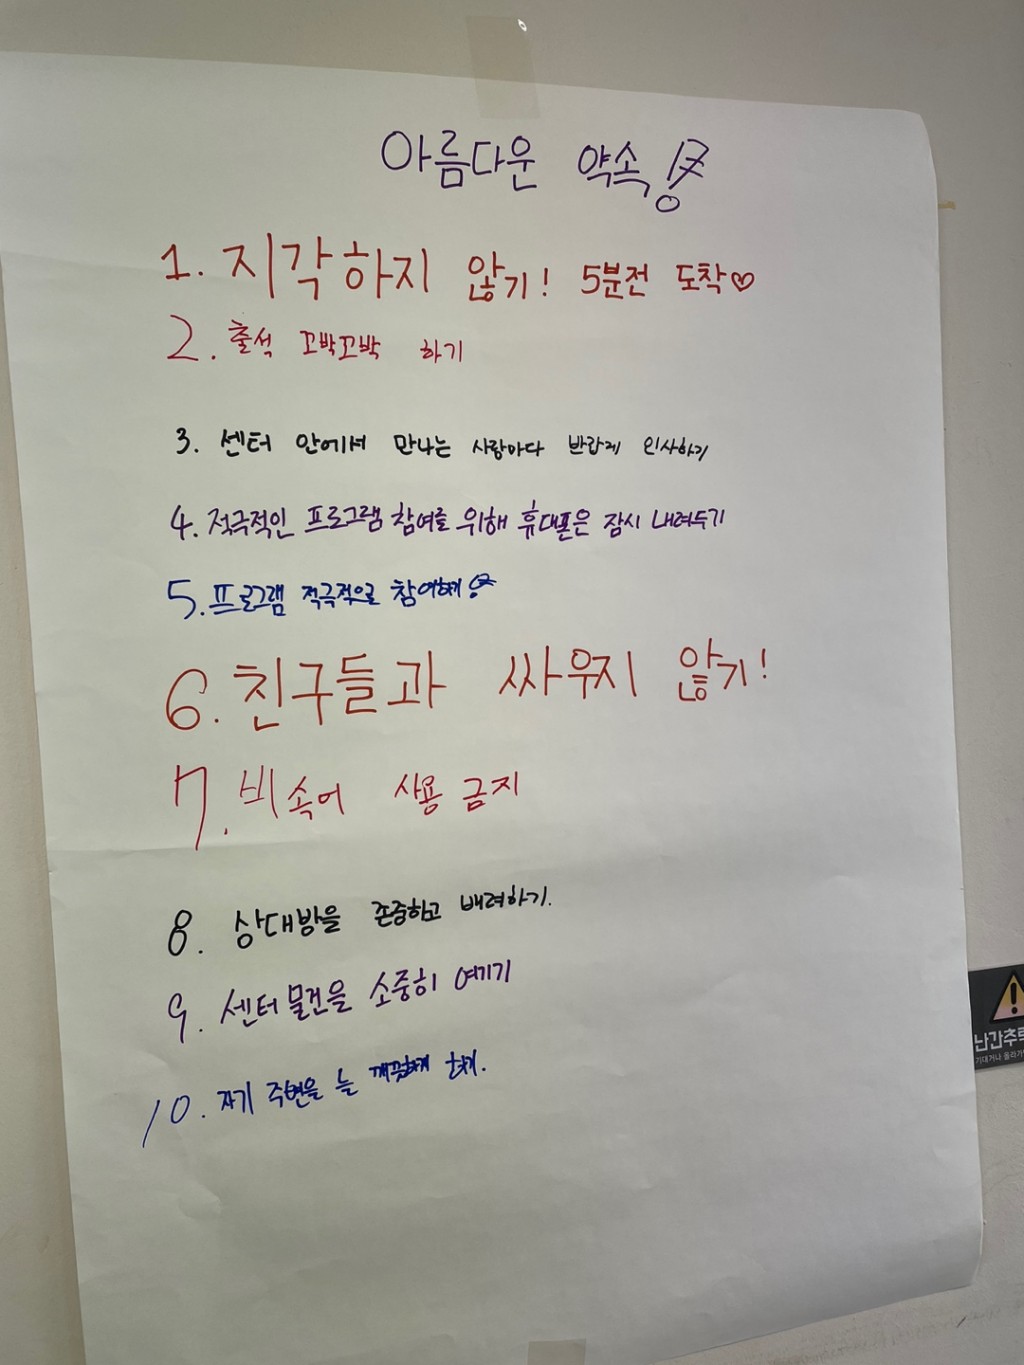 아름다운 약속
1. 지각하지 않기! 5분전 도착♡
2. 출석 꼬박꼬박 하기
3. 센터 안에서 만나는 사람마다 반갑게 인사하기
4. 적극적인 프로그램 참여를 위해 휴대폰은 잠시 내려두기
5. 프로그램 적극적으로 참여하기
6. 친구들과 싸우지 않기!
7. 비속어 사용 금지
8. 상대방을 존중하고 배려하기.
9. 센터 물건을 소중히 여기기
10. 자기 주변을 늘 깨끗하게 하기.
난간추락